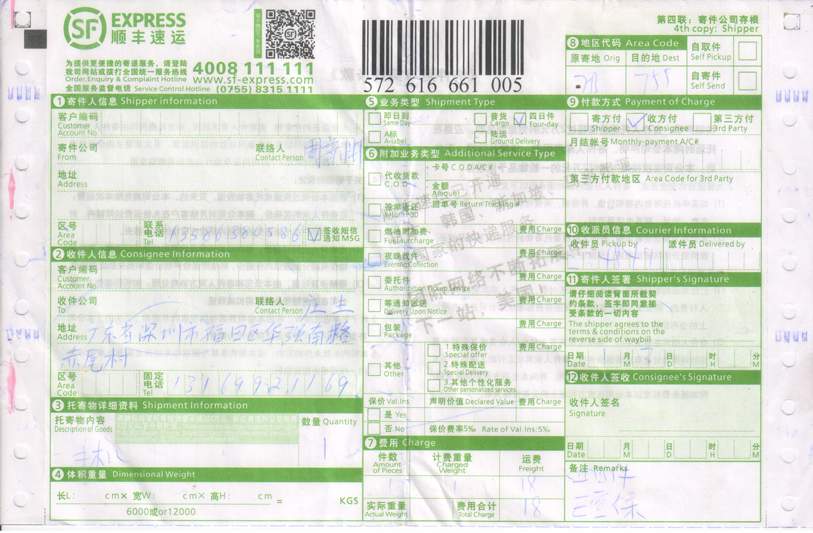 SF EXPRESS
顺丰速运
为提供更便捷的寄递服务,请登陆
我司网站或拨打全国统一服务热线 4008 111 111
Order,Enquiry & Complaint Hotline www.sf-express.com
全国服务监督电话 Service Control Hotline (0755) 8315 1111
572 616 661 005
第四联:寄件公司存根
4th copy: Shipper
1 寄件人信息 Shipper information
客户编码
Customer
Account No.
寄件公司
From
联络人
Contact Person
地址
Address
区号
Area
Code
联系
电话
Tel
签收短信
通知MSG
2 收件人信息 Consignee Information
客户编码
Customer
Account No.
收件公司
To
联络人
Contact Person
地址
Address
广东省深圳市福田区华强南路
赤尾村
区号
Area
Code
固定
电话
Tel
13169921169
3 托寄物详细资料 Shipment Information
托寄物内容
Description of Goods
数量 Quantity
1
手机
4 体积重量 Dimensional Weight
长L: cm× 宽W: cm× 高H: cm = KGS
6000或or12000
5 业务类型 Shipment Type
即日到
Same Day
普货
Cargo
四日件
Four-day
A标
A-label
陆运
Ground Delivery
6 附加业务类型 Additional Service Type
代收货款
C.O.D
卡号 C.O.D A/C#
金额
Amount
签单返还
Return POD
回单单号 Return Tracking#
燃油附加费
Fuel surcharge
费用 Charge
夜晚收件
Evening Collection
费用 Charge
委托件
Authorization Pickup Service
费用 Charge
等通知派送
Delivery Upon Notice
费用 Charge
包装
Package
费用 Charge
其他
Other
1.特殊保价
Special offer
费用 Charge
2 特殊配送
Special Delivery
3 其他个性化服务
Other personalized services
保价 Val.Ins
声明价值 Declared Value
费用 Charge
是 Yes
否 No
保价费率5‰ Rate of Val.Ins.5‰
7 费用 Charge
件数
Amount
of Pieces
计费重量
Charged
Weight
运费
Freight
1
1
18
实际重量
Actual Weight
费用合计
Total Charge
18
8 地区代码 Area Code
原寄地 Orig
目的地 Dest
755
自取件
Self Pickup
自寄件
Self Send
9 付款方式 Payment of Charge
寄方付
Shipper
收方付
Consignee
第三方付
3rd Party
月结帐号 Monthly-payment A/C#
第三方付款地区 Area Code for 3rd Party
10 收派员信息 Courier Information
收件员 Pickup by
派件员 Delivered by
11 寄件人签署 Shipper's Signature
请仔细阅读背面所载契
约条款,签字即同意接
受条款的一切内容
The shipper agrees to the
terms & conditions on the
reverse side of waybill
日期
Date
月
M
日
D
时
H
分
M
12 收件人签收 Consignee's Signature
收件人签名
Signature
日期
Date
月
M
日
D
时
H
分
M
备注 Remarks